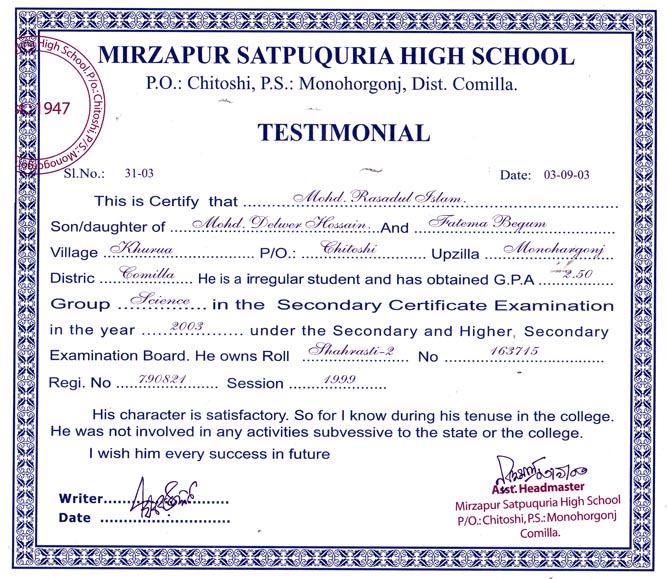 MIRZAPUR SATPUQURIA HIGH SCHOOL
P.O.: Chitoshi, P.S.: Monohorgonj, Dist. Comilla.
High School, P/o: Chitoshi, P/S.: Monogo
1947
TESTIMONIAL
Sl.No.: 31-03 Date: 03-09-03
This is Certify that Mohd. Rasadul Islam.
Son/daughter of Mohd. Delwer Hossain And Fatema Begum
Village Khurua P/O.: Chitoshi Upzilla Monohargonj
Distric Comilla He is a irregular student and has obtained G.P.A 2.50
Group Science in the Secondary Certificate Examination
in the year 2003 under the Secondary and Higher, Secondary
Examination Board. He owns Roll Shahrasti-2 No 163715
Regi. No 790821 Session 1999
His character is satisfactory. So for I know during his tenuse in the college.
He was not involved in any activities subvessive to the state or the college.
I wish him every success in future
Writer
Date
Asst. Headmaster
Mirzapur Satpuquria High School
P/O.: Chitoshi, P.S.: Monohorgonj
Comilla.